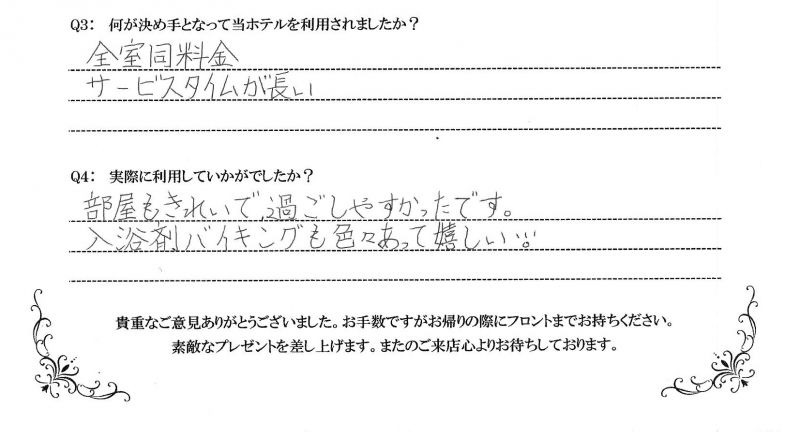 Q3: 何が決め手となって当ホテルを利用されましたか？
全室同料金
サービスタイムが長い
Q4: 実際に利用していかがでしたか？
部屋もきれいで、過ごしやすかったです。
入浴剤バイキングも色々あって嬉しい!!
貴重なご意見ありがとうございました。お手数ですがお帰りの際にフロントまでお持ちください。
素敵なプレゼントを差し上げます。またのご来店心よりお待ちしております。